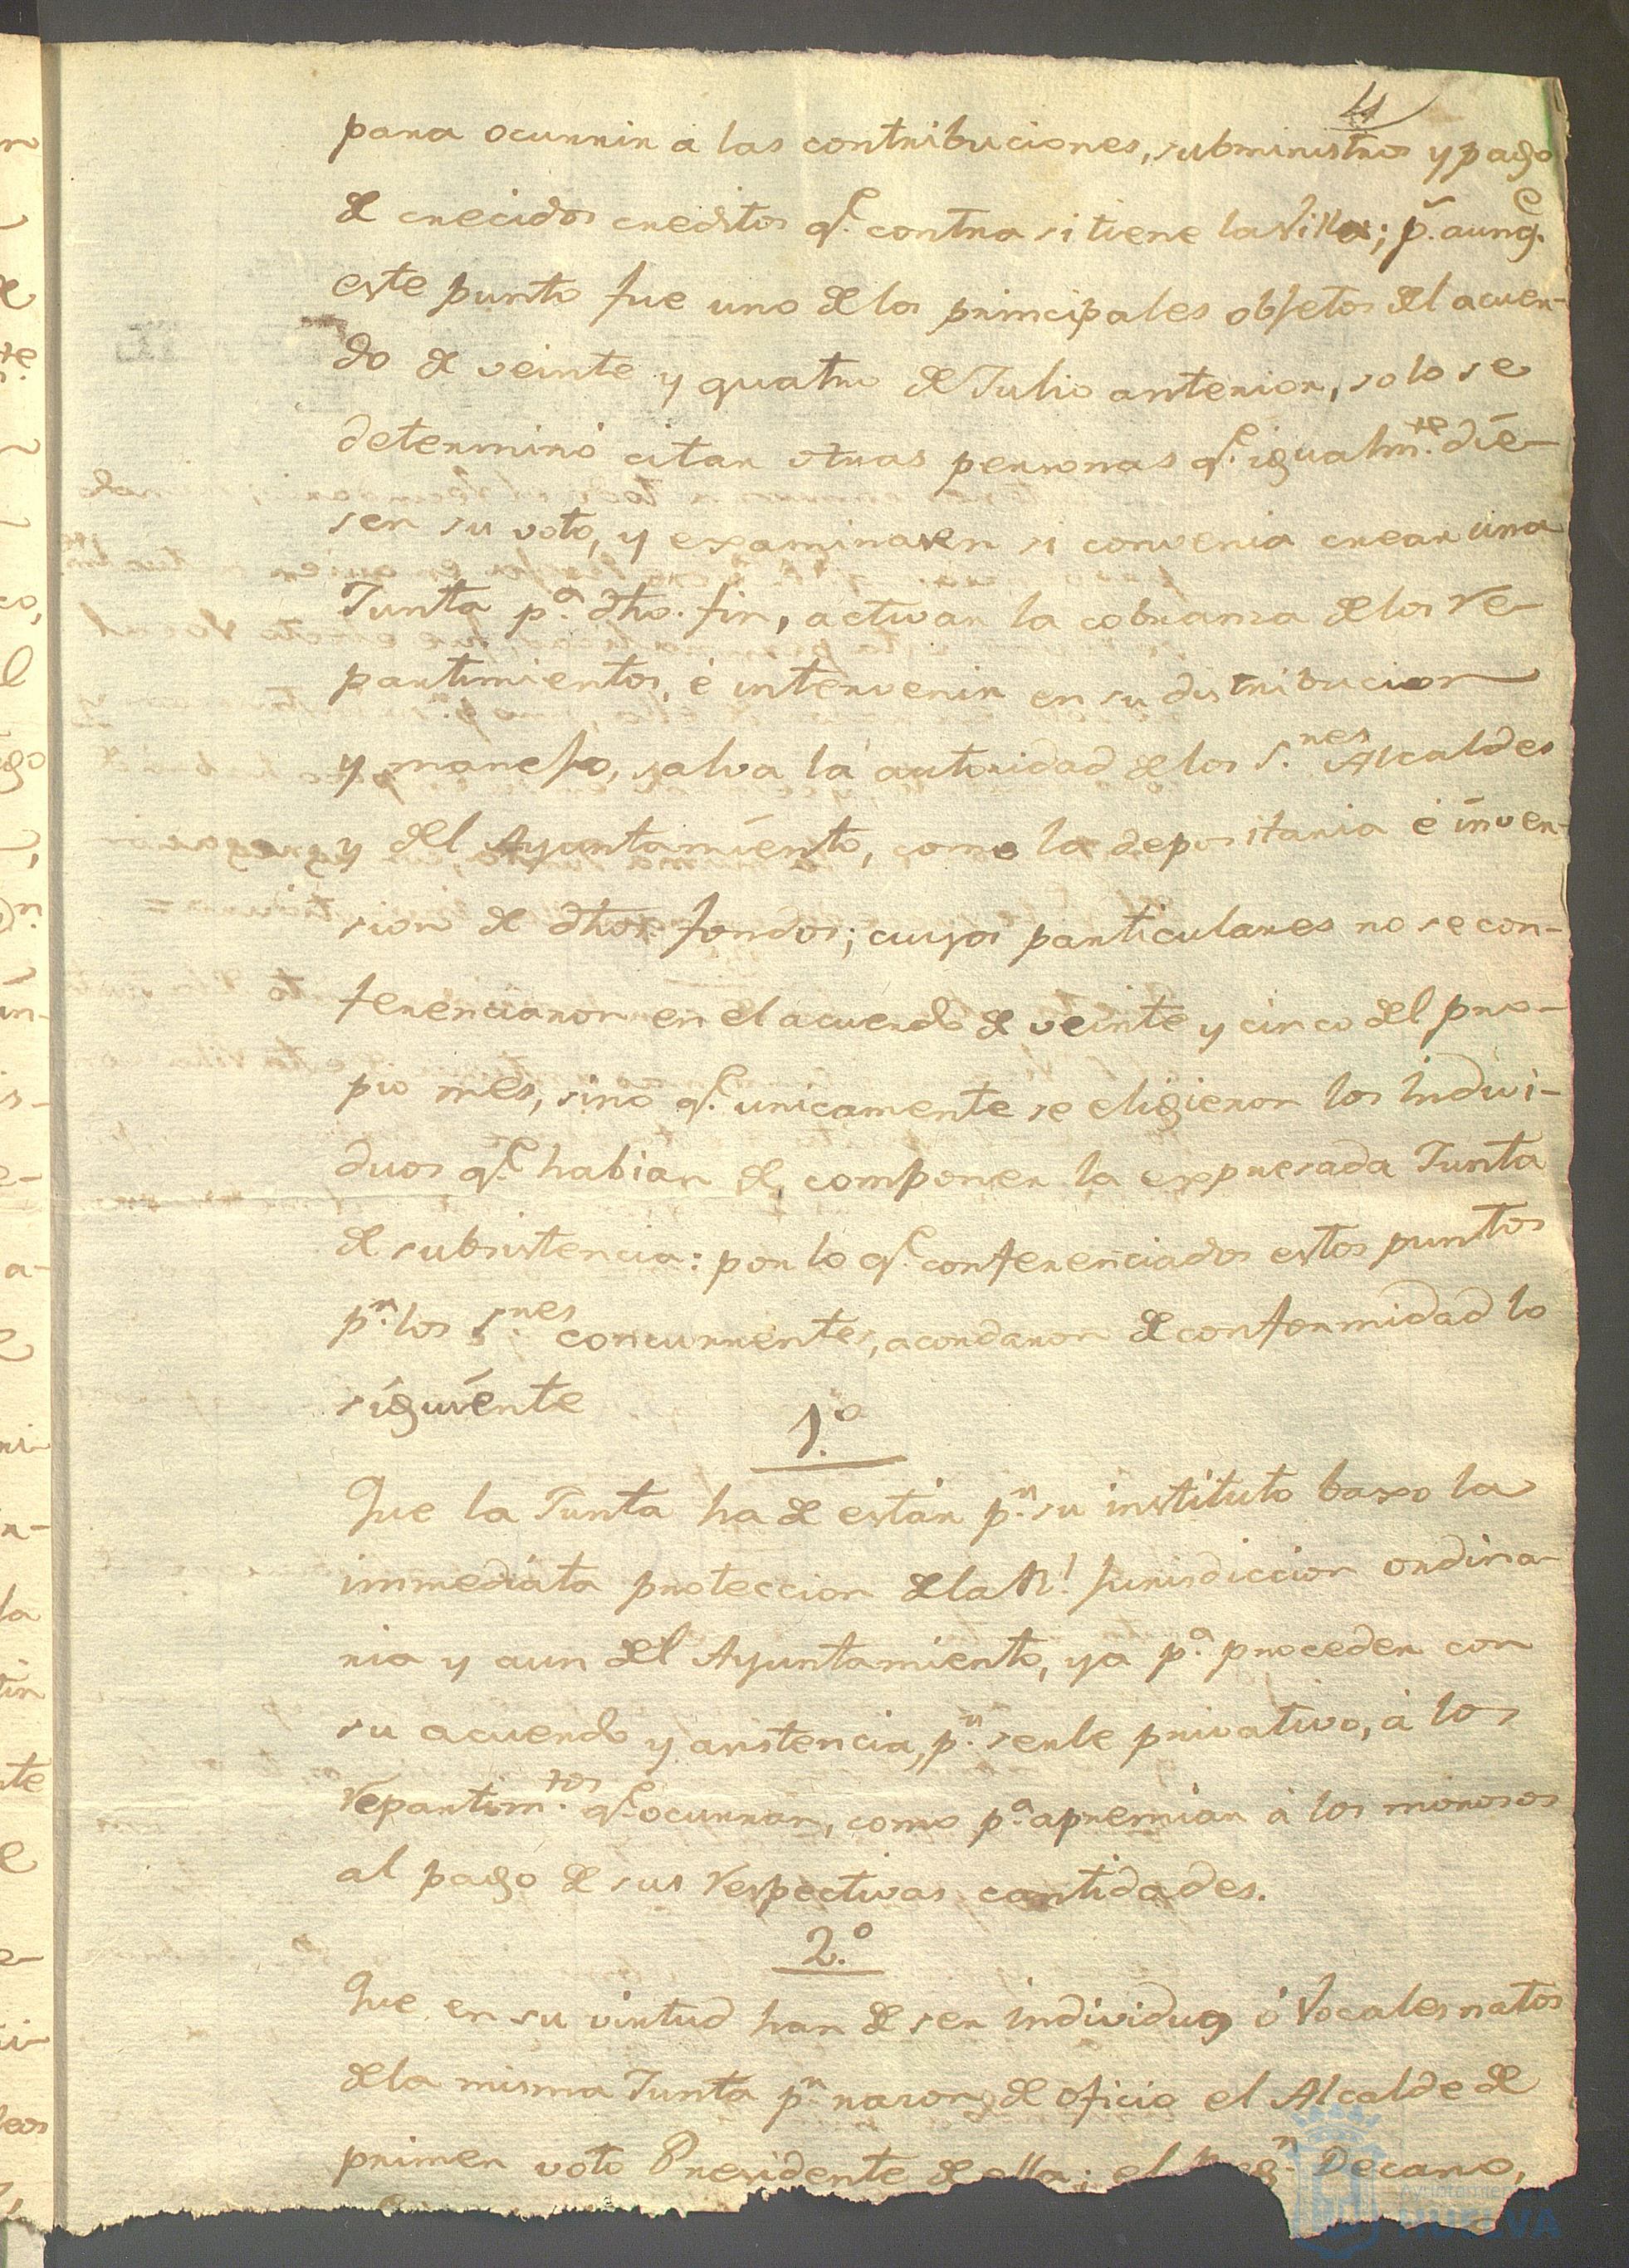 4
para ocurrir a las contribuciones, subministros y pago
de crecidos creditos q.e contra si tiene la Villa; p.o aunq.e
este punto fue uno de los principales objetos del acuer-
do de veinte y quatro de Julio anterior, solo se
determinó citar otras personas q.e igualm.te die-
sen su voto, y examinasen si convenia crear una
Junta p.a dho. fin, activar la cobranza de los re-
partimientos, é intervenir en su distribucion
y manejo, salva la autoridad de los S.nes Alcaldes
y del Ayuntamiento, como la depositaria é inver-
sion de dhos. fondos; cuyos particulares no se con-
ferenciaron en el acuerdo de veinte y cinco del pro-
pio mes, sino q.e unicamente se eligieron los indivi-
duos q.e habian de componer la expresada Junta
de subsistencia: por lo q.e conferenciados estos puntos
p.r los S.res concurrentes, acordaron de conformidad lo
siguiente
1.o
Que la Junta ha de estar p.r su instituto baxo la
immediata proteccion de la R.l Jurisdiccion ordina-
ria y aun del Ayuntamiento, ya p.a proceder con
su acuerdo y asistencia, p.r serle privativo, á los
repartim.tos q.e ocurran, como p.a apremiar á los morosos
al pago de sus respectivas cantidades.
2.o
Que en su virtud han de ser individuos ó Vocales natos
de la misma Junta p.r razon de oficio el Alcalde de
primer voto Presidente de ella; el Reg.r Decano,
Ayuntamiento
HUELVA